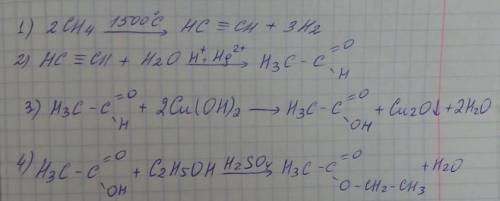 1) 2CH4 1500°C→ HC≡CH + 3H2
2) HC≡CH + H2O H⁺, Hg²⁺→ H3C-C=O H
3) H3C-C=O H + 2Cu(OH)2 → H3C-C=O OH + Cu2O↓ + 2H2O
4) H3C-C=O OH + C2H5OH H2SO4→ H3C-C=O O-CH2-CH3 + H2O